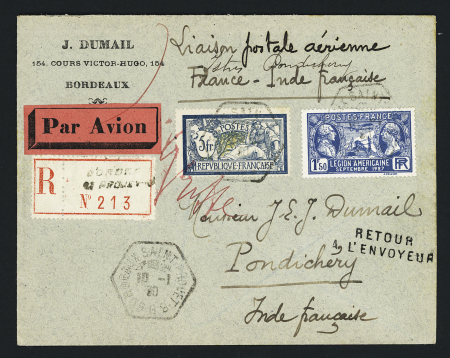 J. DUMAIL
154, COURS VICTOR-HUGO, 154
BORDEAUX
Liaison postale aérienne
Pondichéry
France - Inde française
Par Avion
R
N° 213
POSTES
3fr
REPUBLIQUE FRANÇAISE
POSTES - FRANCE
1.50
LÉGION AMERICAINE
SEPTEMBRE 1927
RF
Monsieur J. E. J. Dumail
RETOUR
à L'ENVOYEUR
Pondichéry
Inde française